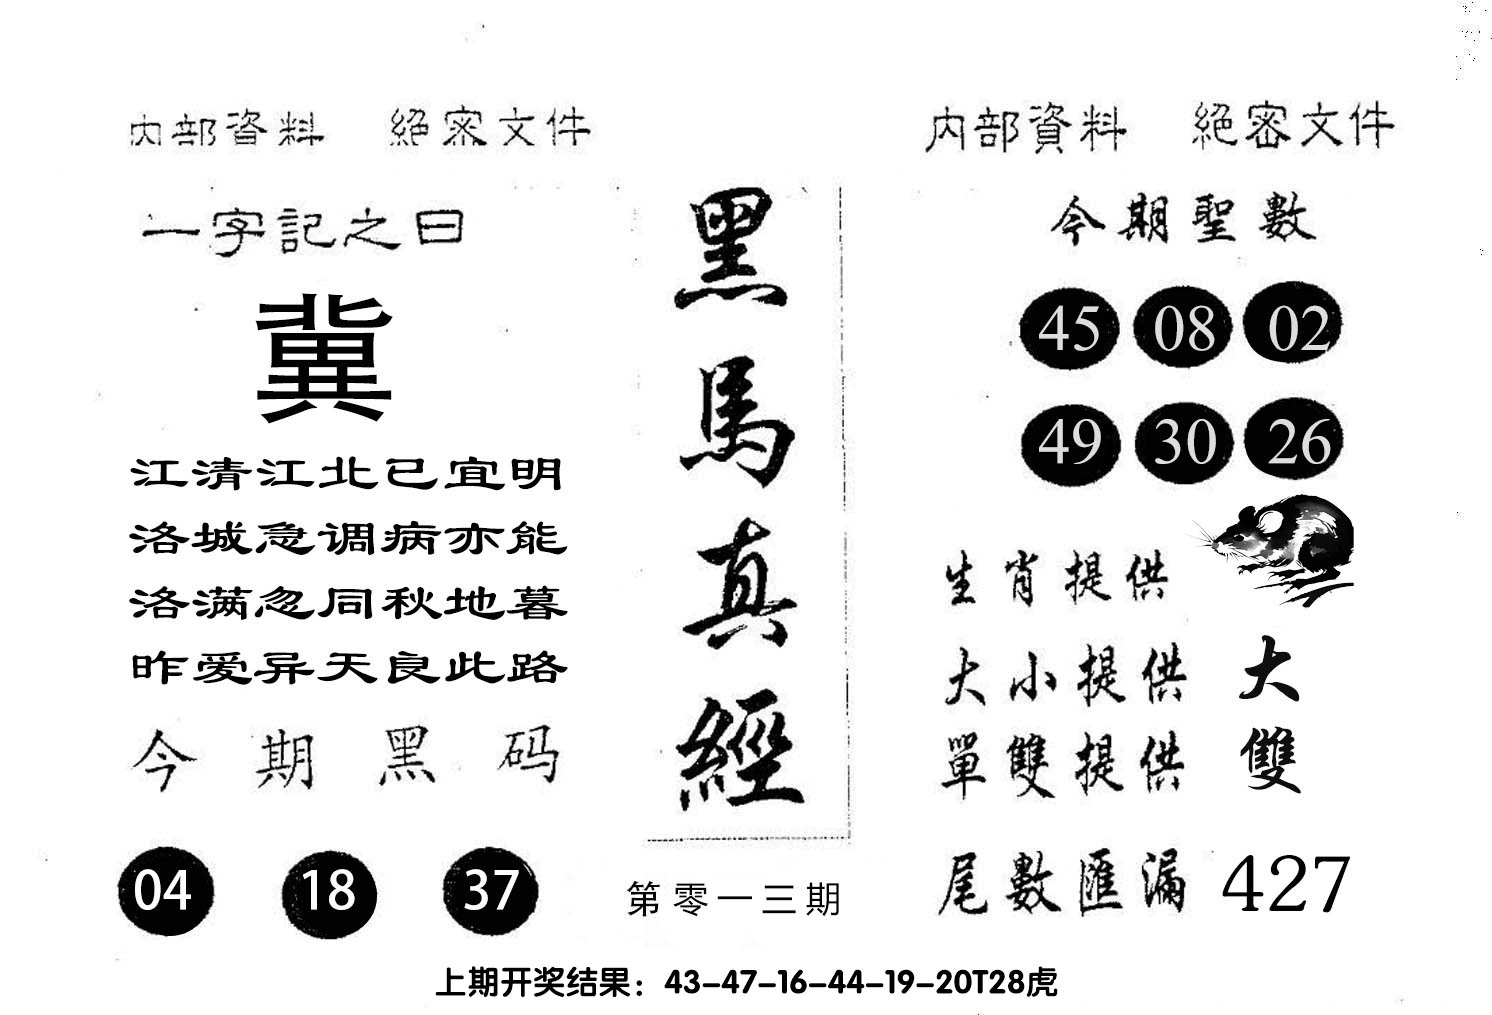 内部資料 絕密文件
一字記之曰
冀
江清江北已宜明
洛城急调病亦能
洛满忽同秋地暮
昨爱异天良此路
今期黑码
04 18 37
黑馬真經
第零一三期
内部資料 絕密文件
今期聖數
45 08 02
49 30 26
生肖提供
大小提供 大
單雙提供 雙
尾數匯漏 427
上期开奖结果：43-47-16-44-19-20T28虎